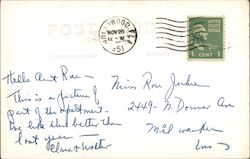 POST
HOLLYWOOD, FLA.
NOV 26
12 - M
1951
1 CENT 1
Hello Aunt Rae -
This is a picture of
part of the apartment -
we like it better than
last year -
Clara & Walter
Miss Rose
2449 N. Downer Ave
Milwaukee
Wis